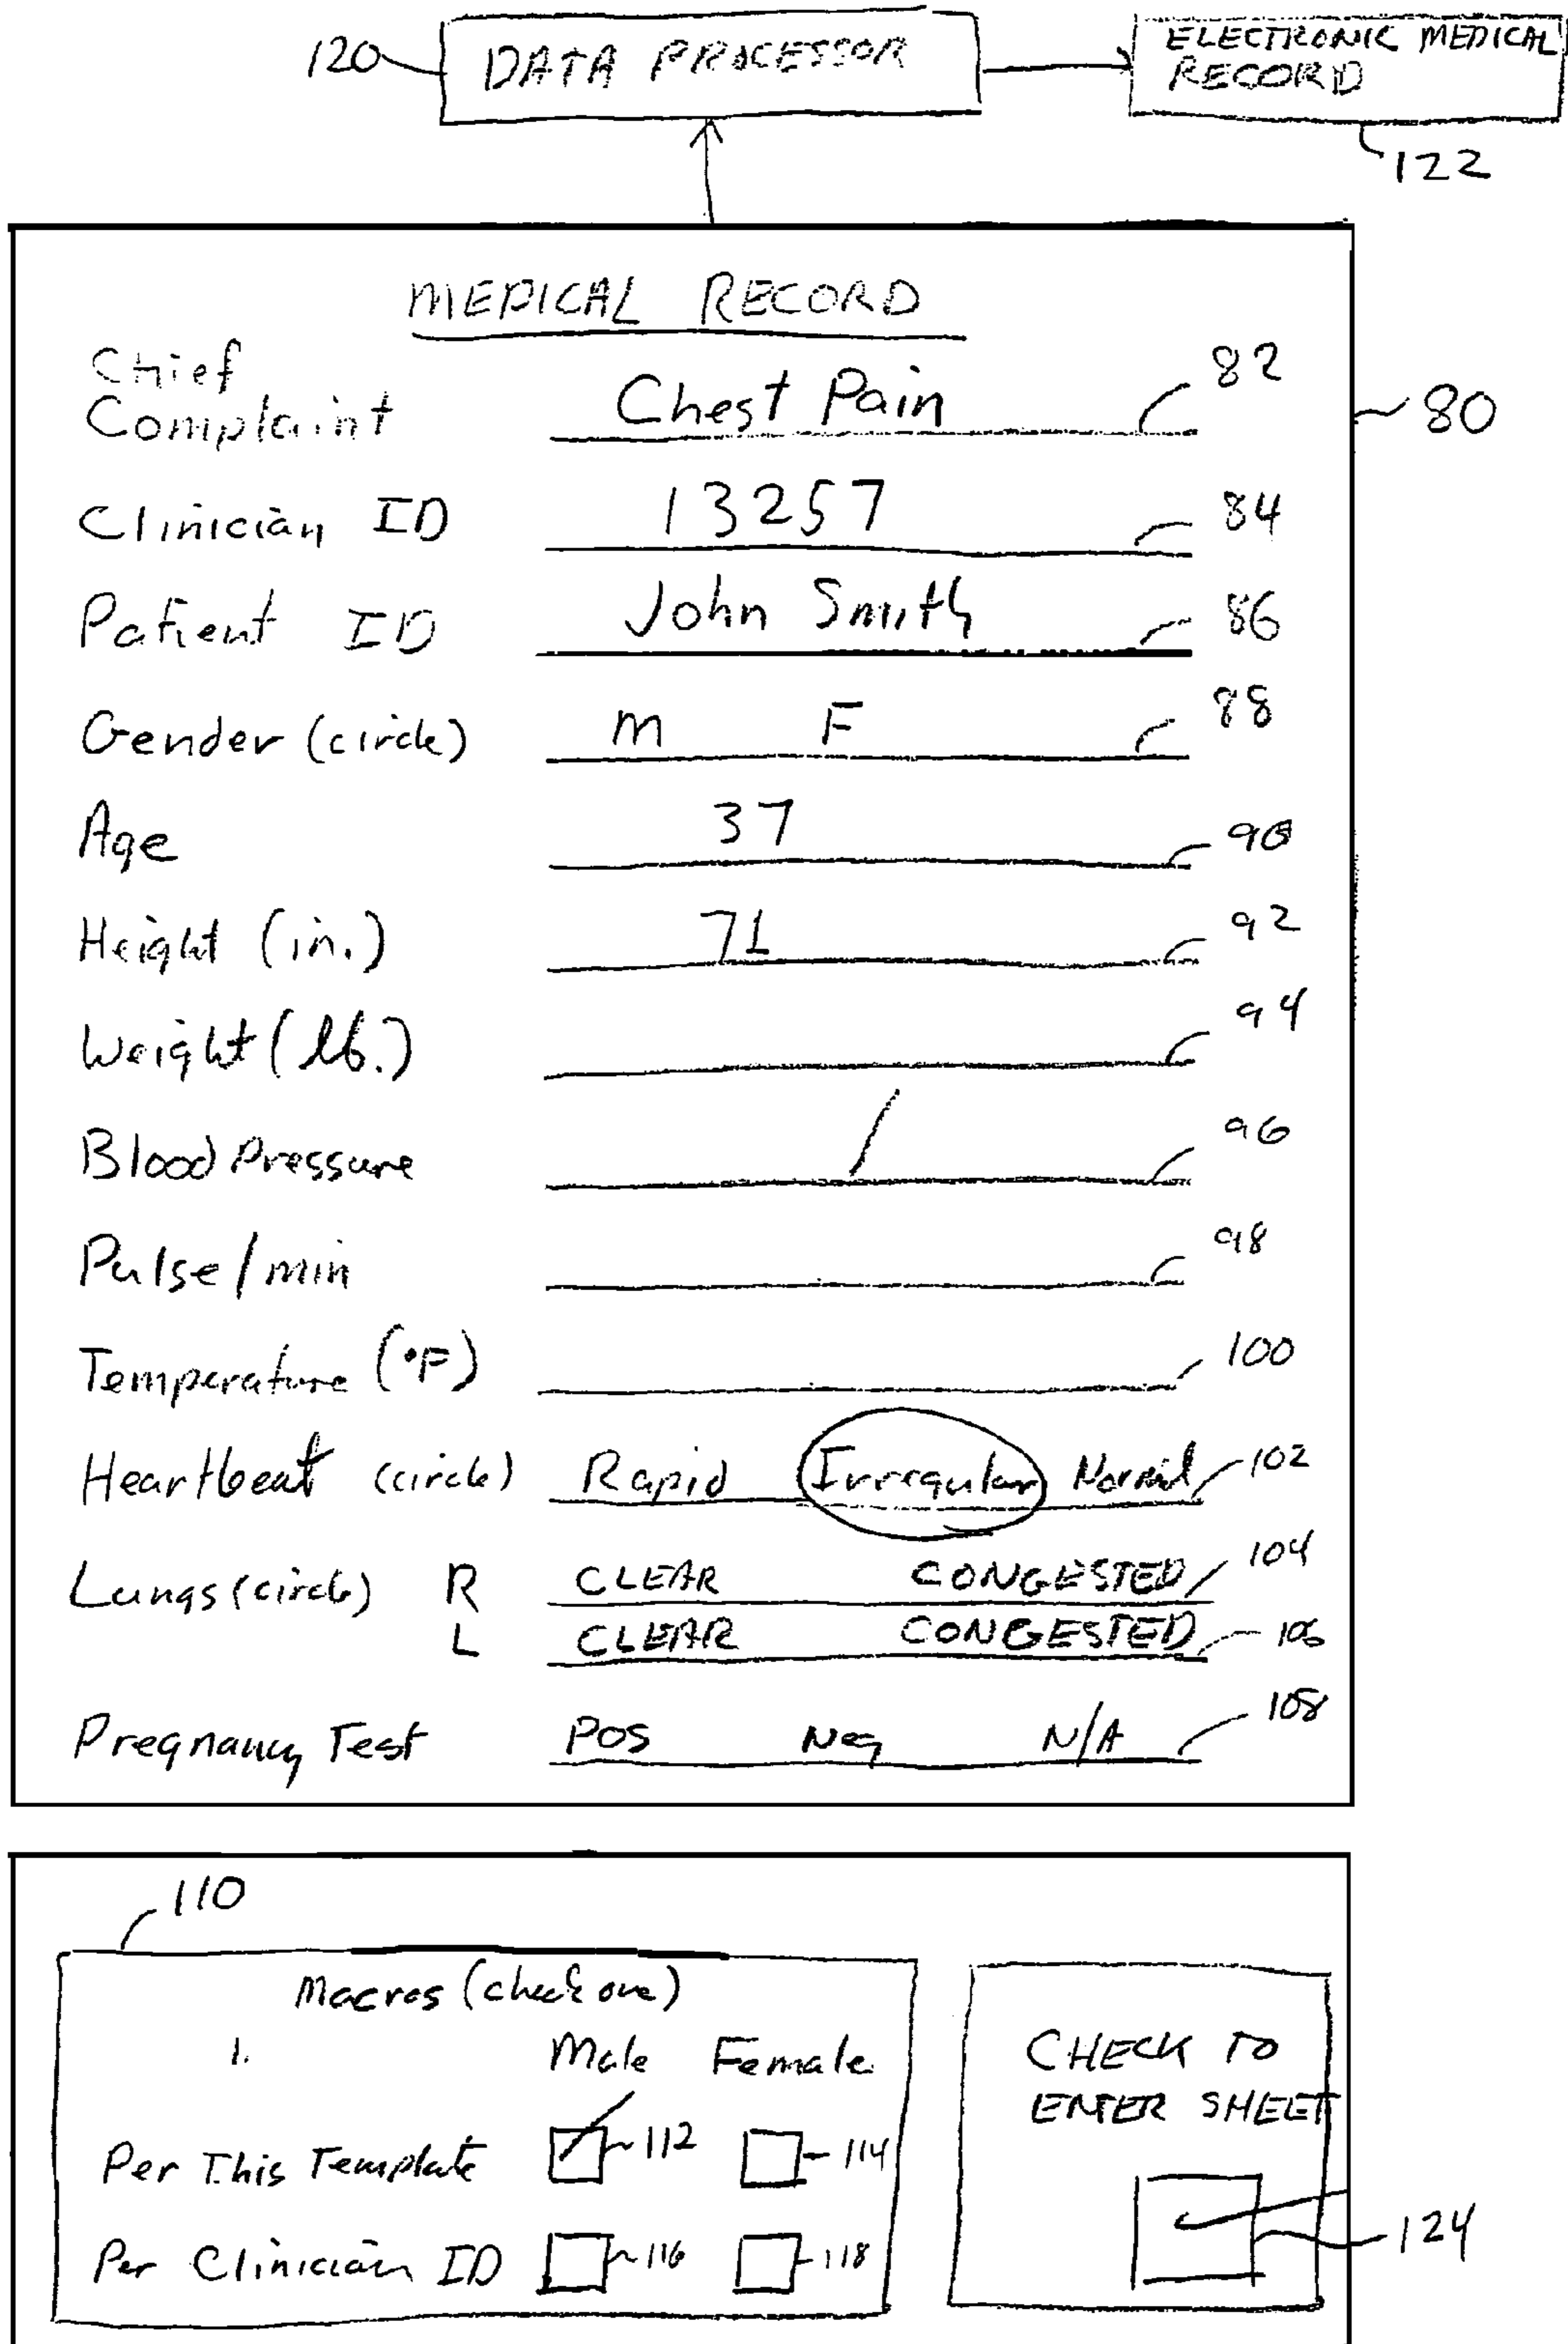 120 DATA PROCESSOR
ELECTRONIC MEDICAL
RECORD
122
MEDICAL RECORD
Chief
Complaint Chest Pain 82
80
Clinician ID 13257 84
Patient ID John Smith 86
Gender (circle) M F 88
Age 37 90
Height (in.) 71 92
Weight (lb.) 94
Blood Pressure / 96
Pulse/min 98
Temperature (°F) 100
Heartbeat (circle) Rapid Irregular Normal 102
Lungs (circle) R CLEAR CONGESTED 104
L CLEAR CONGESTED 106
Pregnancy Test POS Neg N/A 108
110
Macros (check one)
1. Male Female
Per This Template 112 114
Per Clinician ID 116 118
CHECK TO
ENTER SHEET
124